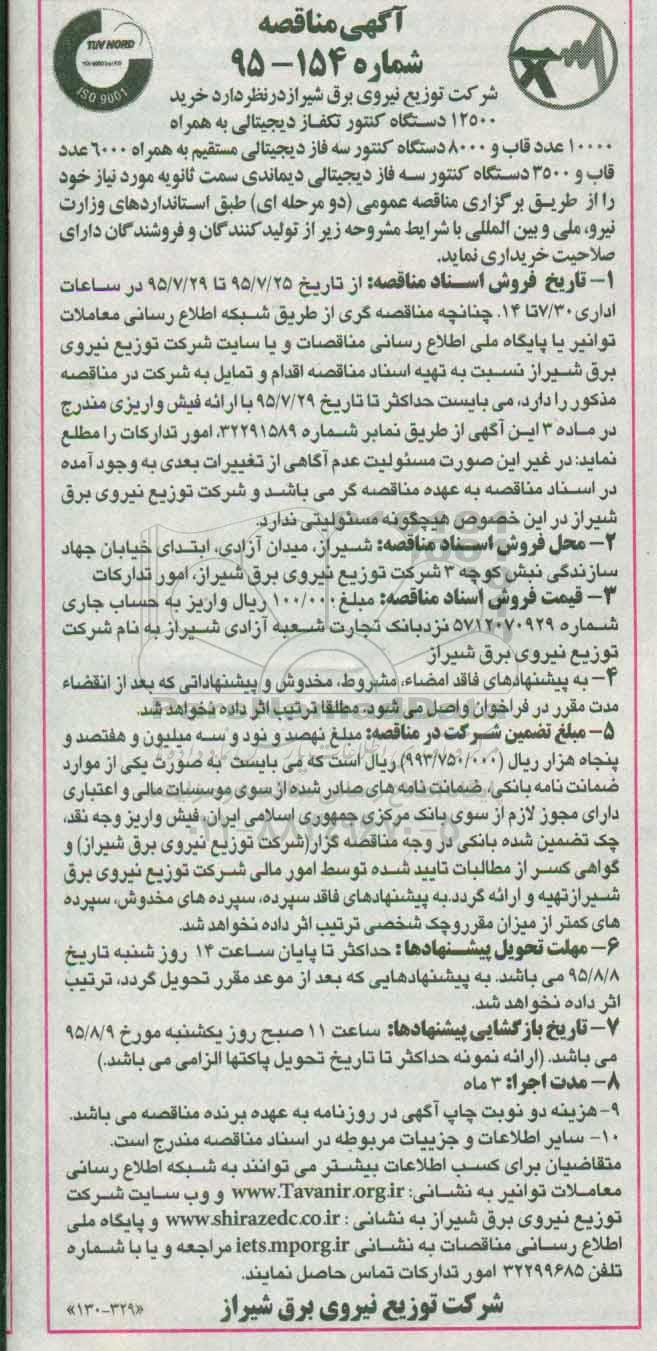 آگهی مناقصه
شماره ۱۵۴- ۹۵
TÜV NORD
ISO 9001
شرکت توزیع نیروی برق شیراز درنظر دارد خرید
۱۲۵۰۰ دستگاه کنتور تکفاز دیجیتالی به همراه
۱۰۰۰۰ عدد قاب و ۸۰۰۰ دستگاه کنتور سه فاز دیجیتالی مستقیم به همراه ۶۰۰۰ عدد
قاب و ۳۵۰۰ دستگاه کنتور سه فاز دیجیتالی دیماندی سمت ثانویه مورد نیاز خود
را از طریق برگزاری مناقصه عمومی (دو مرحله ای) طبق استانداردهای وزارت
نیرو، ملی و بین المللی با شرایط مشروحه زیر از تولیدکنندگان و فروشندگان دارای
صلاحیت خریداری نماید.
۱- تاریخ فروش اسناد مناقصه: از تاریخ ۹۵/۷/۲۵ تا ۹۵/۷/۲۹ در ساعات
اداری ۷/۳۰تا ۱۴. چنانچه مناقصه گری از طریق شبکه اطلاع رسانی معاملات
توانیر یا پایگاه ملی اطلاع رسانی مناقصات و یا سایت شرکت توزیع نیروی
برق شیراز نسبت به تهیه اسناد مناقصه اقدام و تمایل به شرکت در مناقصه
مذکور را دارد، می بایست حداکثر تا تاریخ ۹۵/۷/۲۹ با ارائه فیش واریزی مندرج
در ماده ۳ این آگهی از طریق نمابر شماره ۳۲۲۹۱۵۸۹، امور تدارکات را مطلع
نماید: در غیر این صورت مسئولیت عدم آگاهی از تغییرات بعدی به وجود آمده
در اسناد مناقصه به عهده مناقصه گر می باشد و شرکت توزیع نیروی برق
شیراز در این خصوص هیچگونه مسئولیتی ندارد.
۲- محل فروش اسناد مناقصه: شیراز، میدان آزادی، ابتدای خیابان جهاد
سازندگی نبش کوچه ۳ شرکت توزیع نیروی برق شیراز، امور تدارکات
۳- قیمت فروش اسناد مناقصه: مبلغ ۱۰۰/۰۰۰ ریال واریز به حساب جاری
شماره ۵۷۱۲۰۷۰۹۲۹ نزدبانک تجارت شعبه آزادی شیراز به نام شرکت
توزیع نیروی برق شیراز
۴- به پیشنهادهای فاقد امضاء، مشروط، مخدوش و پیشنهاداتی که بعد از انقضاء
مدت مقرر در فراخوان واصل می شود، مطلقا ترتیب اثر داده نخواهد شد.
۵- مبلغ تضمین شرکت در مناقصه: مبلغ نهصد و نود و سه میلیون و هفتصد و
پنجاه هزار ریال (۹۹۳/۷۵۰/۰۰۰) ریال است که می بایست به صورت یکی از موارد
ضمانت نامه بانکی، ضمانت نامه های صادر شده از سوی موسسات مالی و اعتباری
دارای مجوز لازم از سوی بانک مرکزی جمهوری اسلامی ایران، فیش واریز وجه نقد،
چک تضمین شده بانکی در وجه مناقصه گزار(شرکت توزیع نیروی برق شیراز) و
گواهی کسر از مطالبات تایید شده توسط امور مالی شرکت توزیع نیروی برق
شیراز تهیه و ارائه گردد.به پیشنهادهای فاقد سپرده، سپرده های مخدوش، سپرده
های کمتر از میزان مقرروچک شخصی ترتیب اثر داده نخواهد شد.
۶- مهلت تحویل پیشنهادها: حداکثر تا پایان ساعت ۱۴ روز شنبه تاریخ
۹۵/۸/۸ می باشد. به پیشنهادهایی که بعد از موعد مقرر تحویل گردد، ترتیب
اثر داده نخواهد شد.
۷- تاریخ بازگشایی پیشنهادها: ساعت ۱۱ صبح روز یکشنبه مورخ ۹۵/۸/۹
می باشد. (ارائه نمونه حداکثر تا تاریخ تحویل پاکتها الزامی می باشد.)
۸- مدت اجرا: ۳ ماه
۹- هزینه دو نوبت چاپ آگهی در روزنامه به عهده برنده مناقصه می باشد.
۱۰- سایر اطلاعات و جزییات مربوطه در اسناد مناقصه مندرج است.
متقاضیان برای کسب اطلاعات بیشتر می توانند به شبکه اطلاع رسانی
معاملات توانیر به نشانی: www.Tavanir.org.ir و وب سایت شرکت
توزیع نیروی برق شیراز به نشانی : www.shirazedc.co.ir و پایگاه ملی
اطلاع رسانی مناقصات به نشانی iets.mporg.ir مراجعه و یا با شماره
تلفن ۳۲۲۹۹۶۸۵ امور تدارکات تماس حاصل نمایند.
شرکت توزیع نیروی برق شیراز
«۱۳۰-۳۲۹»